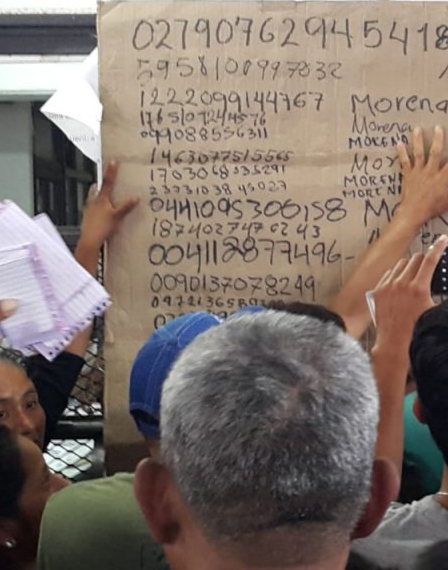 02790762945418
5958100997832
1222099144767 Morena
1765107244576 Morena
099088556311 MORENA
1463077515565 Mor
1703068535291 MORENA
23731038 45027 MORENA
0441095306158 Mo
187402747 02 43
0041128 77496-
0090137078249